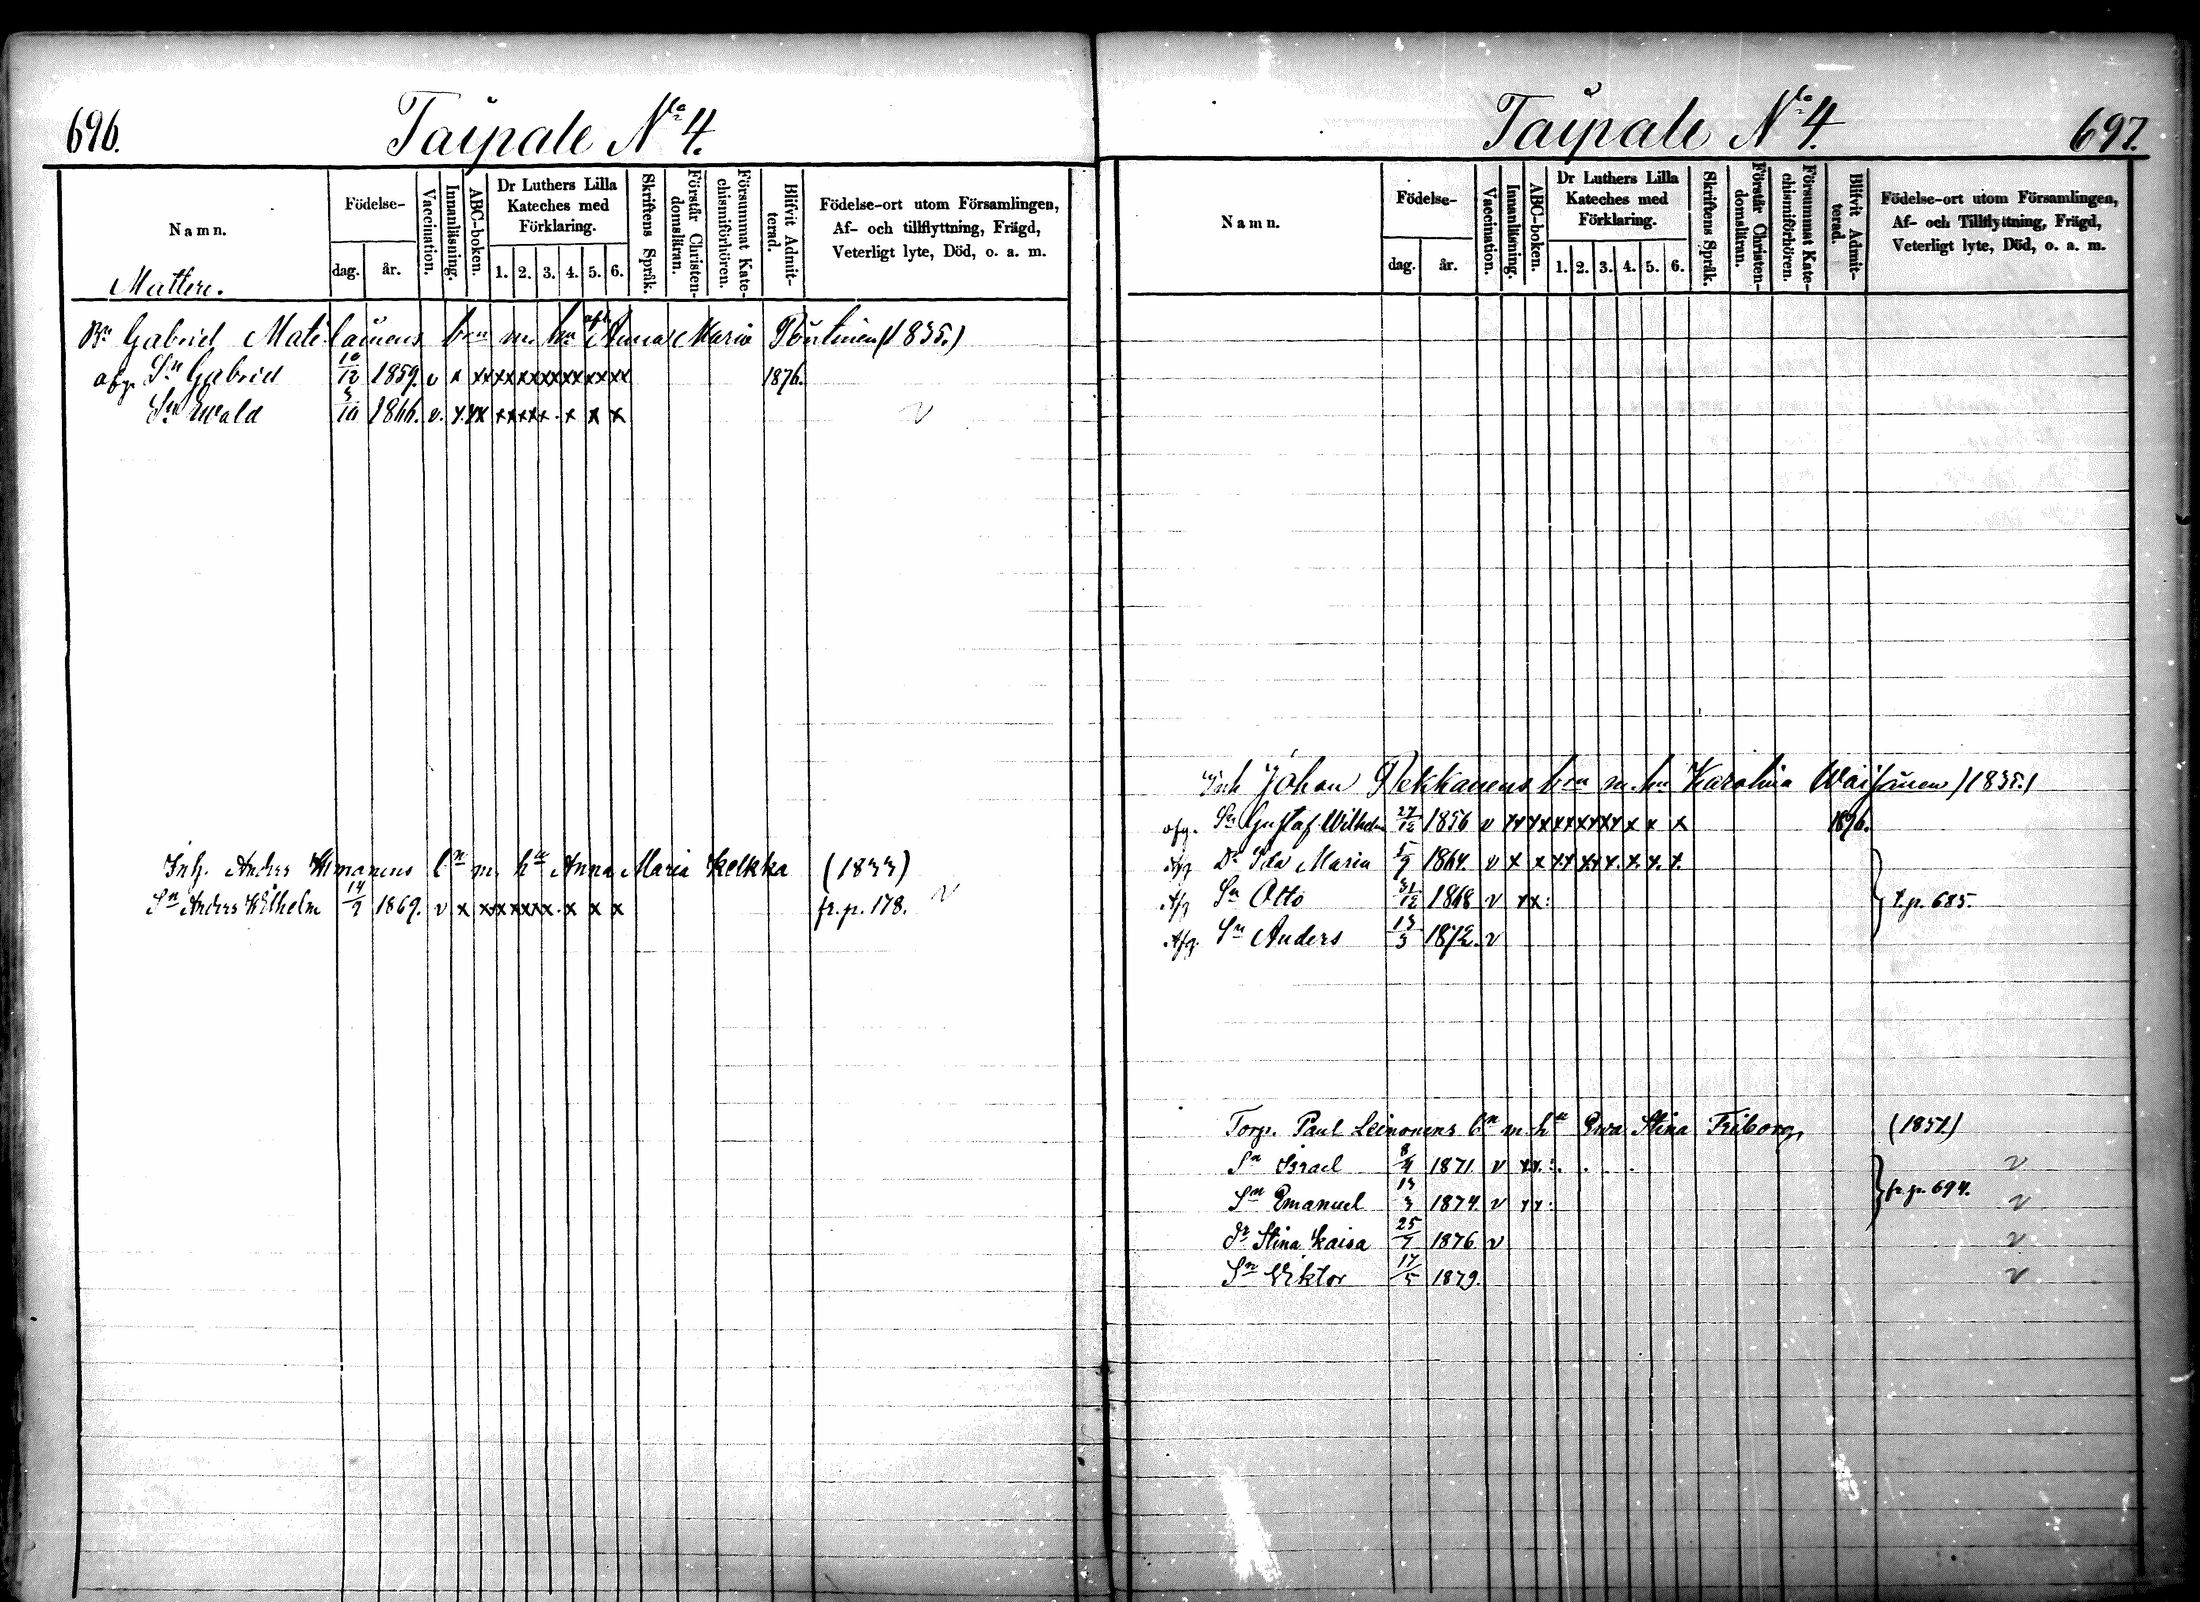 696.
Taipale No 4.
Namn.
Födelse-
dag.
år.
Vaccination.
Innanläsning.
ABC-boken.
Dr Luthers Lilla Kateches med Förklaring.
1. 2. 3. 4. 5. 6.
Skriftens Språk.
Förstår Christendomsläran.
Försummat Katechismiförhören.
Blifvit Admitterad.
Födelse-ort utom Församlingen, Af- och tillflyttning, Frägd, Veterligt lyte, Död, o. a. m.
Mattere.
Gabriel Matilainens bn m. hu Anna Maria (1835.)
afg. Sn Gabriel 10/12 1859. v x xx xx xx xx xx xx xx 1876.
Sn Ewald 5/10 1866. v. x xx xx xx x x x v
Inh. Anders bn m. hu Anna Maria Kelkka (1833)
Sn Anders Wilhelm 14/2 1869. v x xx xx xx x x x fr. p. 178. v
697.
Taipale No 4.
Namn.
Födelse-
dag.
år.
Vaccination.
Innanläsning.
ABC-boken.
Dr Luthers Lilla Kateches med Förklaring.
1. 2. 3. 4. 5. 6.
Skriftens Språk.
Förstår Christendomsläran.
Försummat Katechismiförhören.
Blifvit Admitterad.
Födelse-ort utom Församlingen, Af- och Tillflyttning, Frägd, Veterligt lyte, Död, o. a. m.
Inh Johan Pekkanens bn m. hu Karolina Waisänen (1835.)
afg. Sn Gustaf Wilhelm 27/12 1856 v xx xx xx xx xx x x x 1876.
Afg Dr Ida Maria 5/9 1864. v x x xx xx x. x. x. x.
Afg Sn Otto 31/12 1868 v xx: t. p. 685.
Afg. Sn Anders 13/3 1872. v
Torp. Paul Leinonens bn m hu Ewa Stina Friborg (1851)
Sn Israel 8/4 1871 v xx: v
Sn Emanuel 13/3 1874 v xx: fr. p. 694. v
dr Stina Kaisa 25/7 1876 v v
Sn Viktor 17/5 1879. v